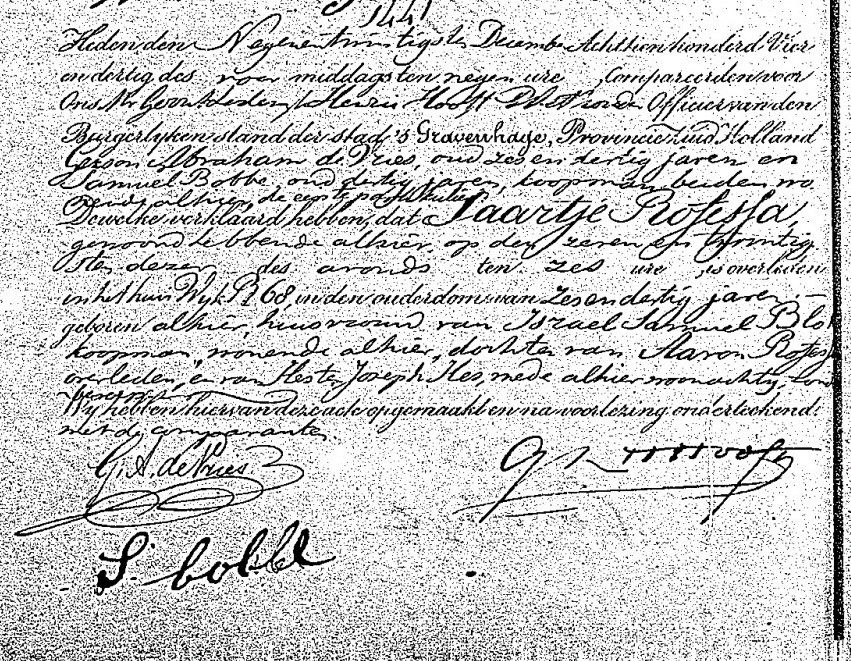 1441
Heden den Negenentwintigsten December Achttien honderd Vier
en dertig des voor middags ten negen ure, Compareerden voor
Ons Mr. Hooft Officier van den
Burgerlyken stand der stad 's Gravenhage, Provincie Zuid Holland
Gerson Abraham de Vries, oud zes en dertig jaren en
Samuel Bobbe, oud dertig jaren, koopman beiden wo
nende alhier, de eerste
Dewelke verklaard hebben, dat Saartje Professa,
gewoond hebbende alhier, op den zeven en twintig
sten dezer des avonds ten zes ure, is overleden
in het huis Wyk R 68, in den ouderdom van zes en dertig jaren
geboren alhier, huisvrouw van Israel Samuel Blok
koopman, wonende alhier, dochter van Aaron Profess
overleden, en van Hester Joseph Hes, mede alhier woonachtig,
Wy hebben hiervan deze acte opgemaakt en na voorlezing onderteekend
met de comparanten
G. A. de Vries
S. bobbe